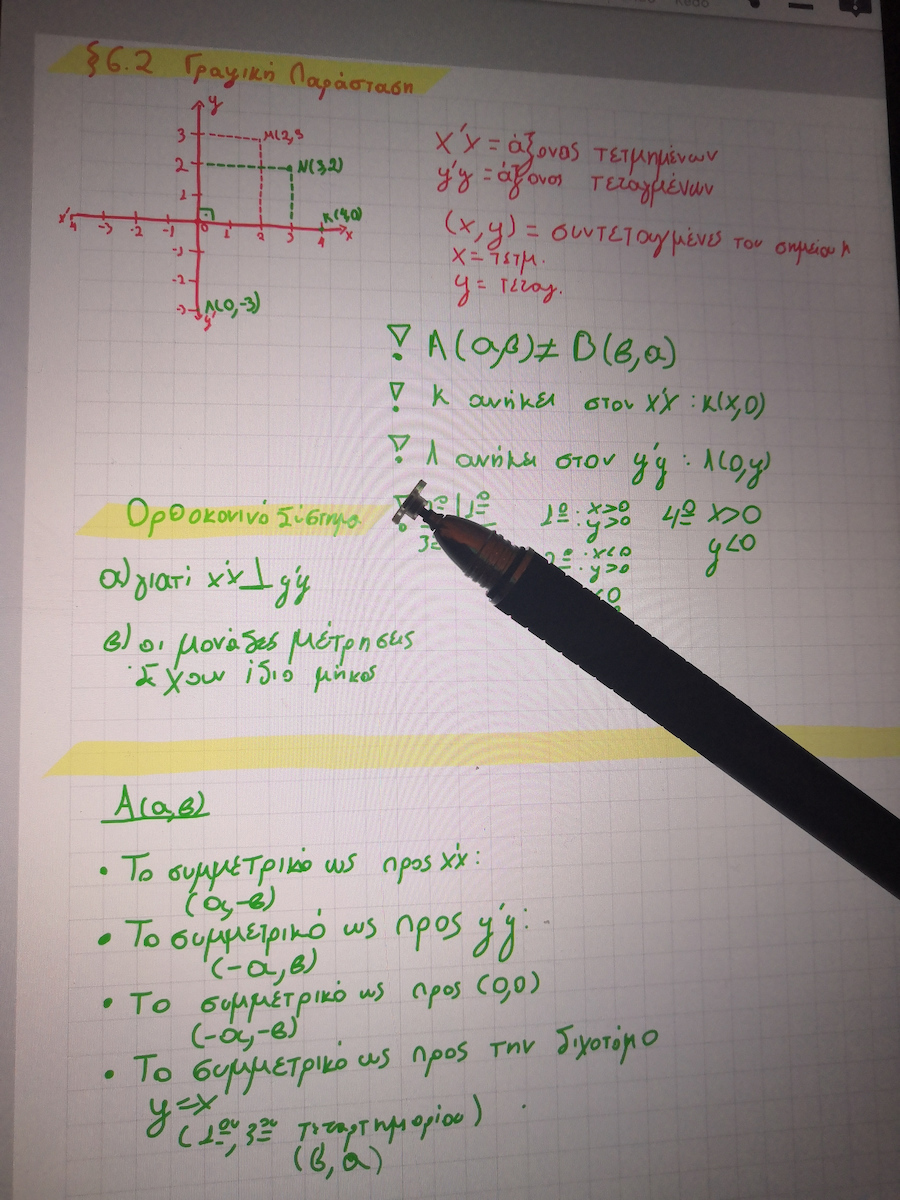 §6.2 Γραφική Παράσταση
y
3
M(2,3
2
N(3,2)
1
x' -4 -3 -2 -1 0 1 2 3 4 x
K(4,0)
-1
-2
-3
Λ(0,-3)
y'
x'x = άξονας τετμημένων
y'y = άξονας τεταγμένων
(x,y) = συντεταγμένες του σημείου Μ
x = τετμ.
y = τεταγ.
A(α,β) ≠ B(β,α)
! Κ ανήκει στον x'x : Κ(x,0)
! Λ ανήκει στον y'y : Λ(0,y)
1ο
3
1ο : x>0
y>0
x<0
y>0
<0
4ο x>0
y<0
Ορθοκονινό Σύστημα
α) γιατί x'x ⊥ y'y
β) οι μονάδες μέτρησεις
έχουν ίδιο μήκος
A(α,β)
• Το συμμετρικό ως προς x'x:
(α,-β)
• Το συμμετρικό ως προς y'y:
(-α,β)
• Το συμμετρικό ως προς (0,0)
(-α,-β)
• Το συμμετρικό ως προς την διχοτόμο
y=x
(1ου, 3ου τεταρτημορίου)
(β,α)